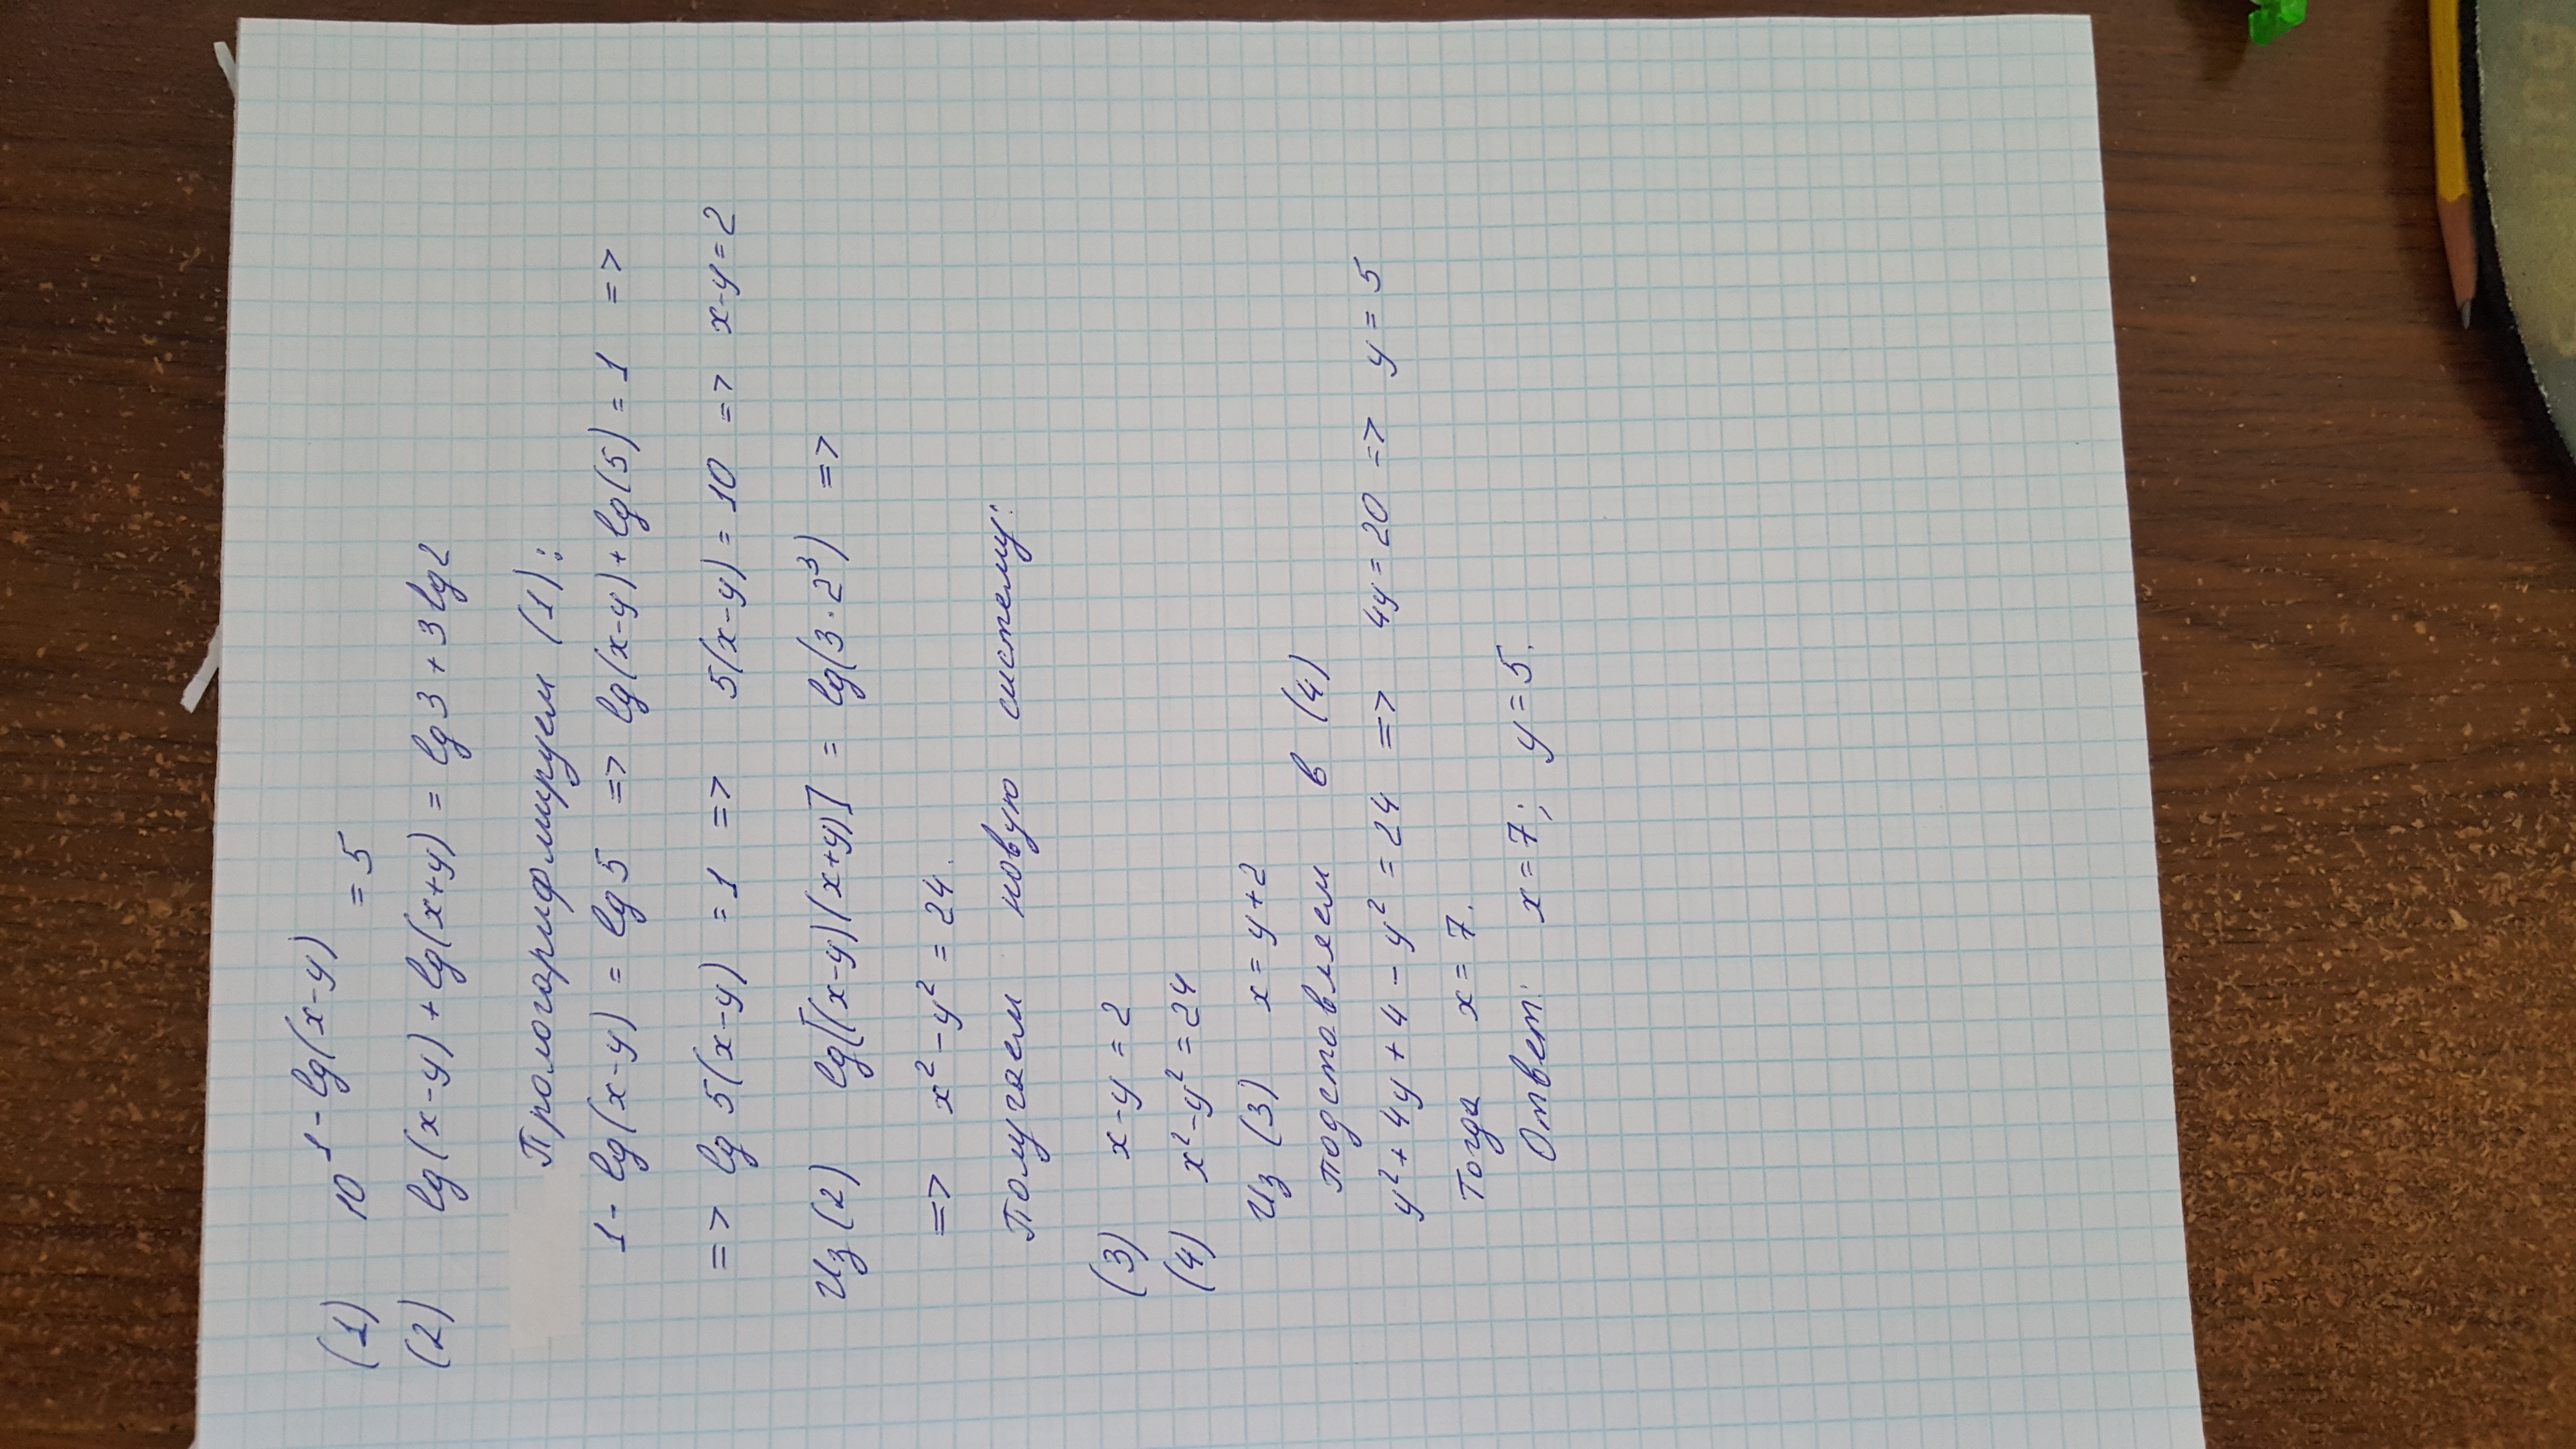 (1) 10^{1-lg(x-y)} = 5
(2) lg(x-y)+lg(x+y) = lg3+3lg2
Прологорифмируем (1):
1-lg(x-y) = lg5 => lg(x-y)+lg(5)=1 =>
=> lg5(x-y) =1 => 5(x-y)=10 => x-y=2
Из (2) lg[(x-y)(x+y)] = lg(3·2³) =>
=> x²-y²=24.
Получаем новую систему:
(3) x-y=2
(4) x²-y²=24
Из (3) x=y+2
подставляем в (4)
y²+4y+4-y²=24 => 4y=20 => y=5
Тогда x=7.
Ответ: x=7; y=5.